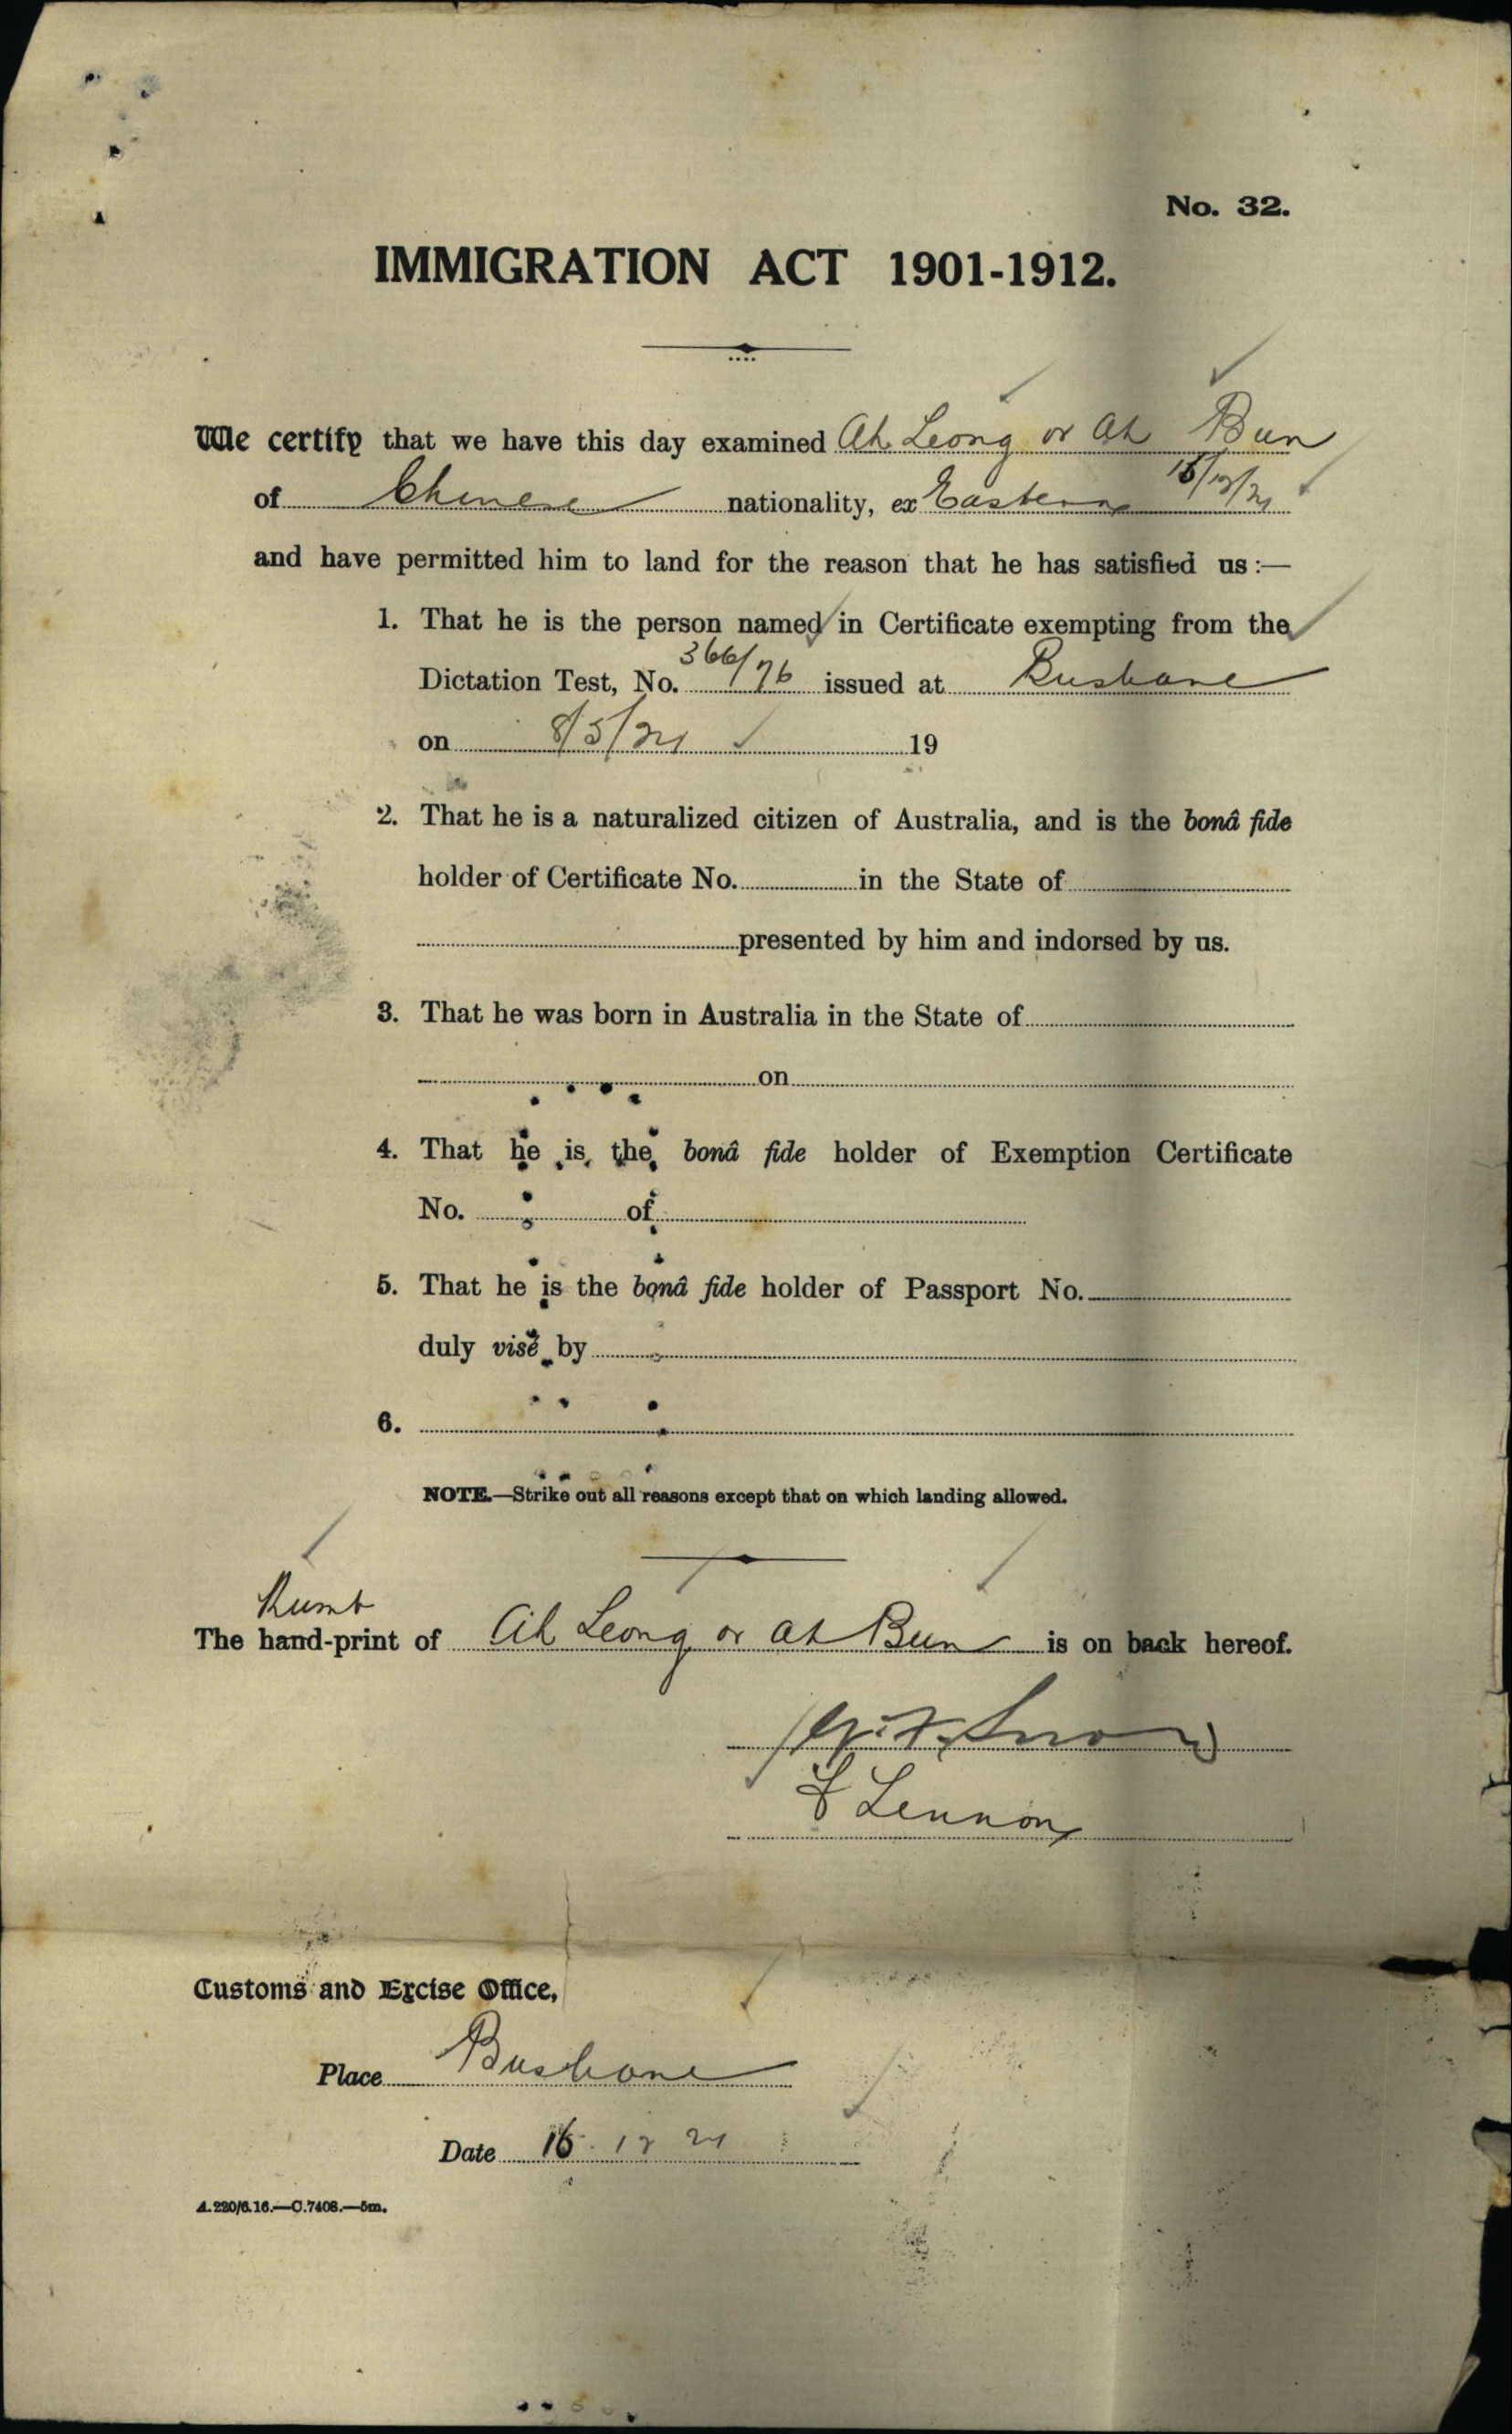 No. 32.
IMMIGRATION ACT 1901-1912.
We certify that we have this day examined Ah Leong or Ah Bun
of Chinese nationality, ex Eastern
and have permitted him to land for the reason that he has satisfied us:—
1. That he is the person named in Certificate exempting from the
Dictation Test, No. 366/76 issued at Brisbane
on 8/5/21 19
2. That he is a naturalized citizen of Australia, and is the bonâ fide
holder of Certificate No. in the State of
presented by him and indorsed by us.
3. That he was born in Australia in the State of
on
4. That he is the bonâ fide holder of Exemption Certificate
No. of
5. That he is the bonâ fide holder of Passport No.
duly visé by
6.
NOTE.—Strike out all reasons except that on which landing allowed.
Thumb
The hand-print of Ah Leong or Ah Bun is on back hereof.
Lennon
Customs and Excise Office,
Place Brisbane
Date 16. 12 21
A.220/6.16.—C.7408.—5m.